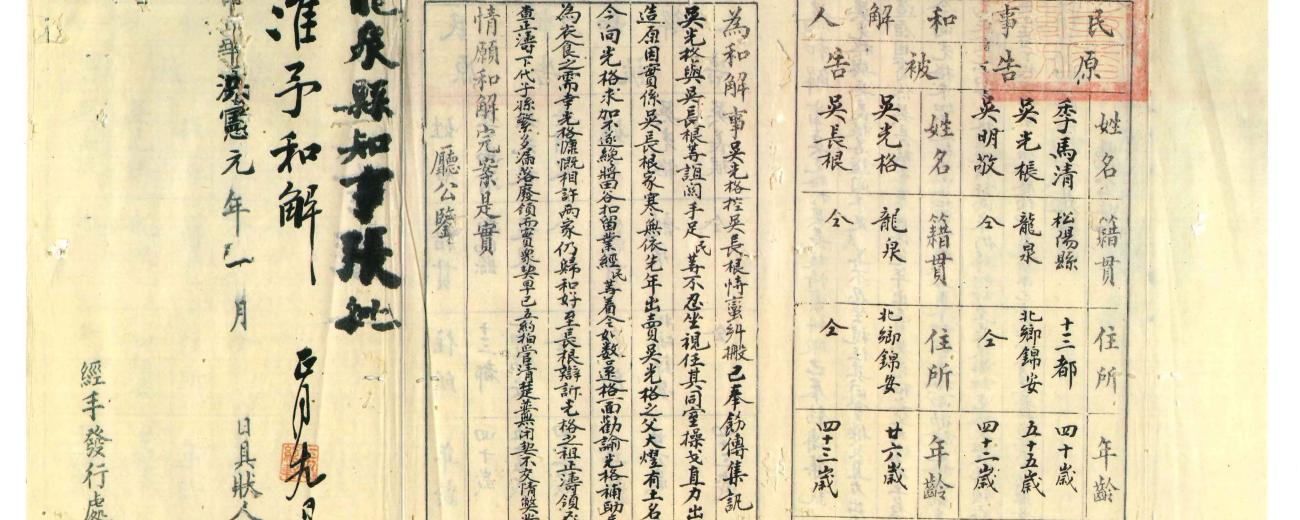 民事和解人
原告
被告
姓名 籍貫 住所 年齡
季馬清 松陽縣 十三都 四十歲
吳光棖 龍泉 北鄉錦安 五十五歲
吳明敬 仝 仝 四十二歲
姓名 籍貫 住所 年齡
吳光格 龍泉 北鄉錦安 廿六歲
吳長根 仝 仝 四十三歲
為和解事吳光格控吳長根恃蠻糾搬已奉飭傳集訊
吳光格與吳長根等誼関手足民等不忍坐視任其同室操戈直力出
造原因實係吳長根家寒無依先年出賣吳光格之父大燈有土名
今向光格求加不遂繞將田谷扣留業經民等着令如數還格面勸諭光格補助
為衣食之需幸光格慷慨相許兩家仍歸和好至長根辯訴光格之祖正濤領
查正濤下代子孫繁多漏落廢領而實眾契早已五約拍管清楚並無閉契不交情弊
情願和解完案是實
廳公鑒
龍泉縣知事張批
准予和解
洪憲元年一月
正月 日
日具狀人
經手發行處